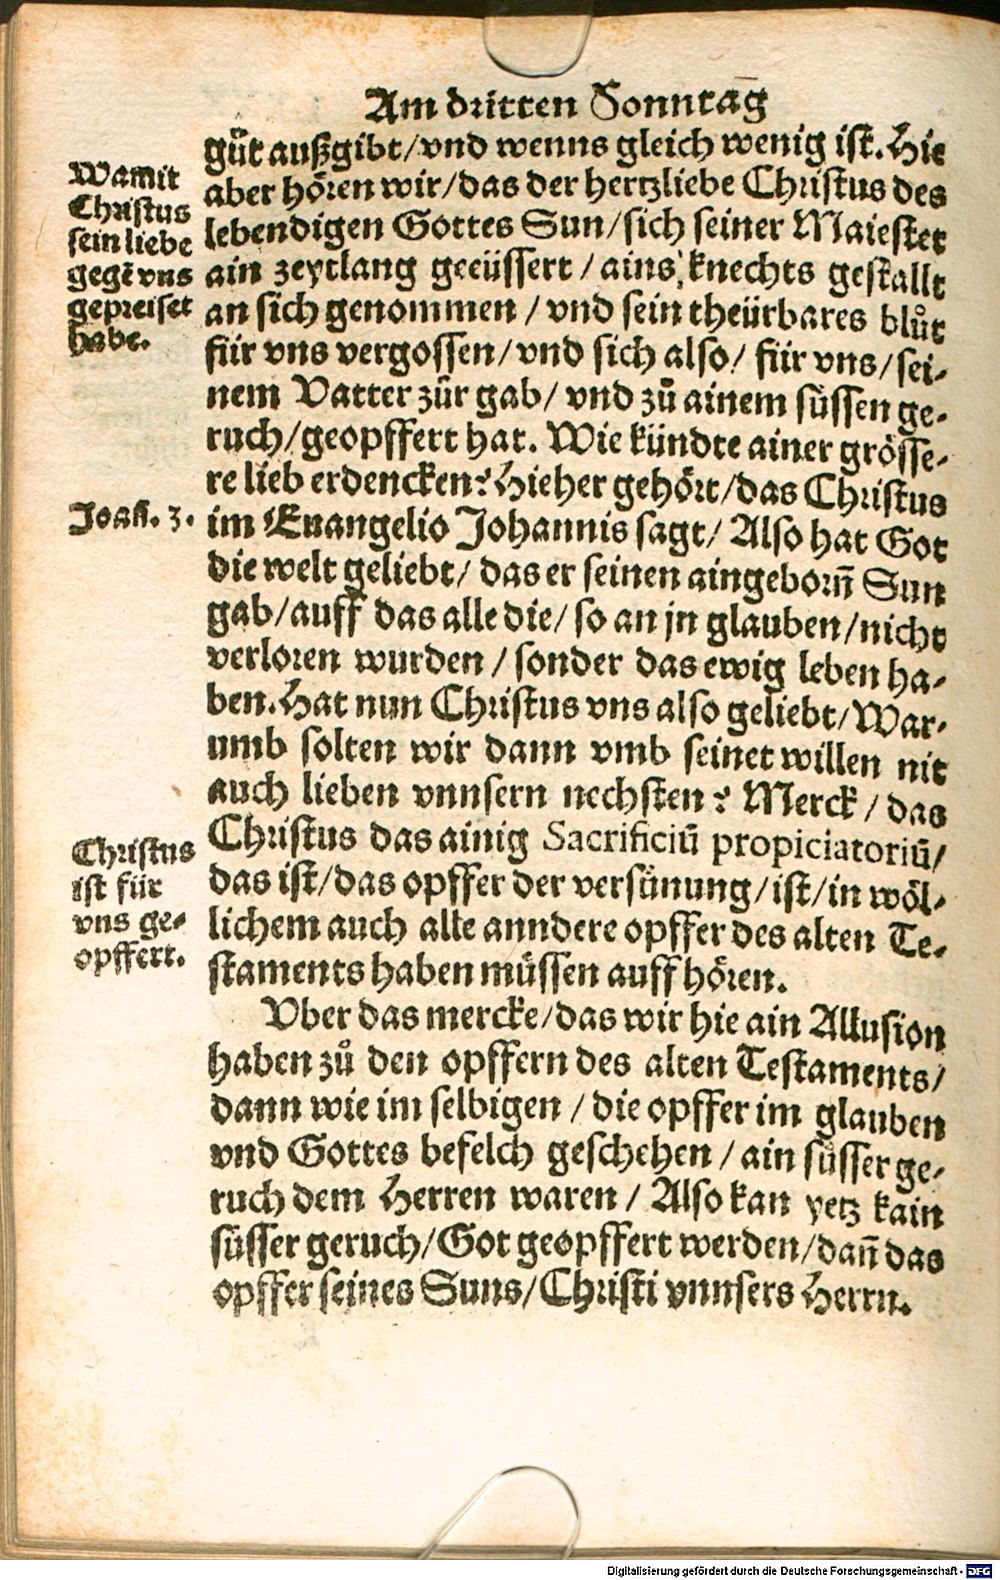 Am dritten Sonntag
gůt außgibt/vnd wenns gleich wenig ist. Hie
aber hören wir/das der hertzliebe Christus des
lebendigen Gottes Sun/sich seiner Maiestet
ain zeytlang geeüssert/ains knechts gestallt
an sich genommen/vnd sein theürbares blůt
für vns vergossen/vnd sich also/für vns/sei-
nem Vatter zůr gab/vnd zů ainem süssen ge-
ruch/geopffert hat. Wie kündte ainer grösse-
re lieb erdencken? Hieher gehört/das Christus
im Euangelio Johannis sagt/Also hat Got
die welt geliebt/das er seinen aingeborn̄ Sun
gab/auff das alle die/so an jn glauben/nicht
verloren wurden/sonder das ewig leben ha-
ben. Hat nun Christus vns also geliebt/War-
umb solten wir dann vmb seinet willen nit
auch lieben vnnsern nechsten? Merck/das
Christus das ainig Sacrificiū propiciatoriū/
das ist/das opffer der versünung/ist/in wöl-
lichem auch alle anndere opffer des alten Te-
staments haben müssen auff hören.
Vber das mercke/das wir hie ain Allusion
haben zů den opffern des alten Testaments/
dann wie im selbigen/die opffer im glauben
vnd Gottes befelch geschehen/ain süsser ge-
ruch dem Herren waren/Also kan yetz kain
süsser geruch/Got geopffert werden/dan̄ das
opffer seines Suns/Christi vnnsers Herrn.
Wamit
Christus
sein liebe
gegē vns
gepreiset
habe.
Joan̄. 3.
Christus
ist für
vns ge-
opffert.
Digitalisierung gefördert durch die Deutsche Forschungsgemeinschaft - DFG